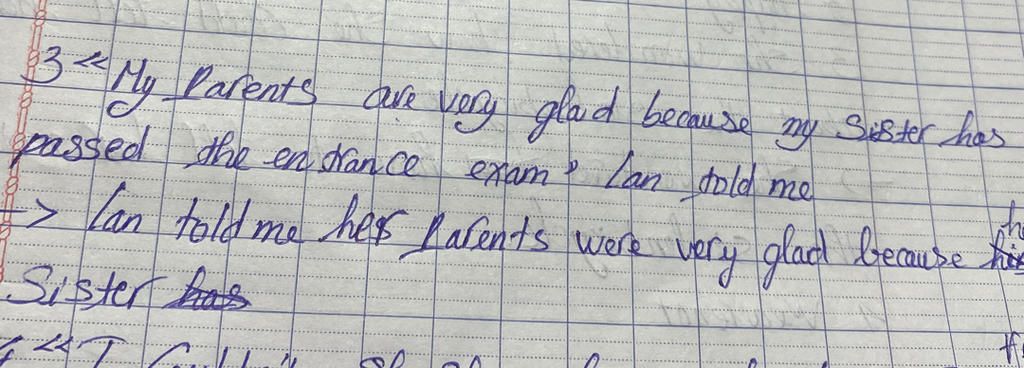 3 “My Parents are very glad because my Sister has
passed the entrance exam” Lan told me
-> Lan told me her Parents were very glad because
Sister
“I